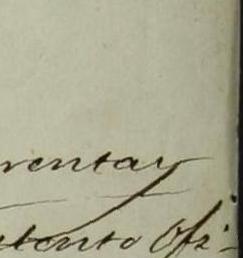 rentay
tento Ofi-